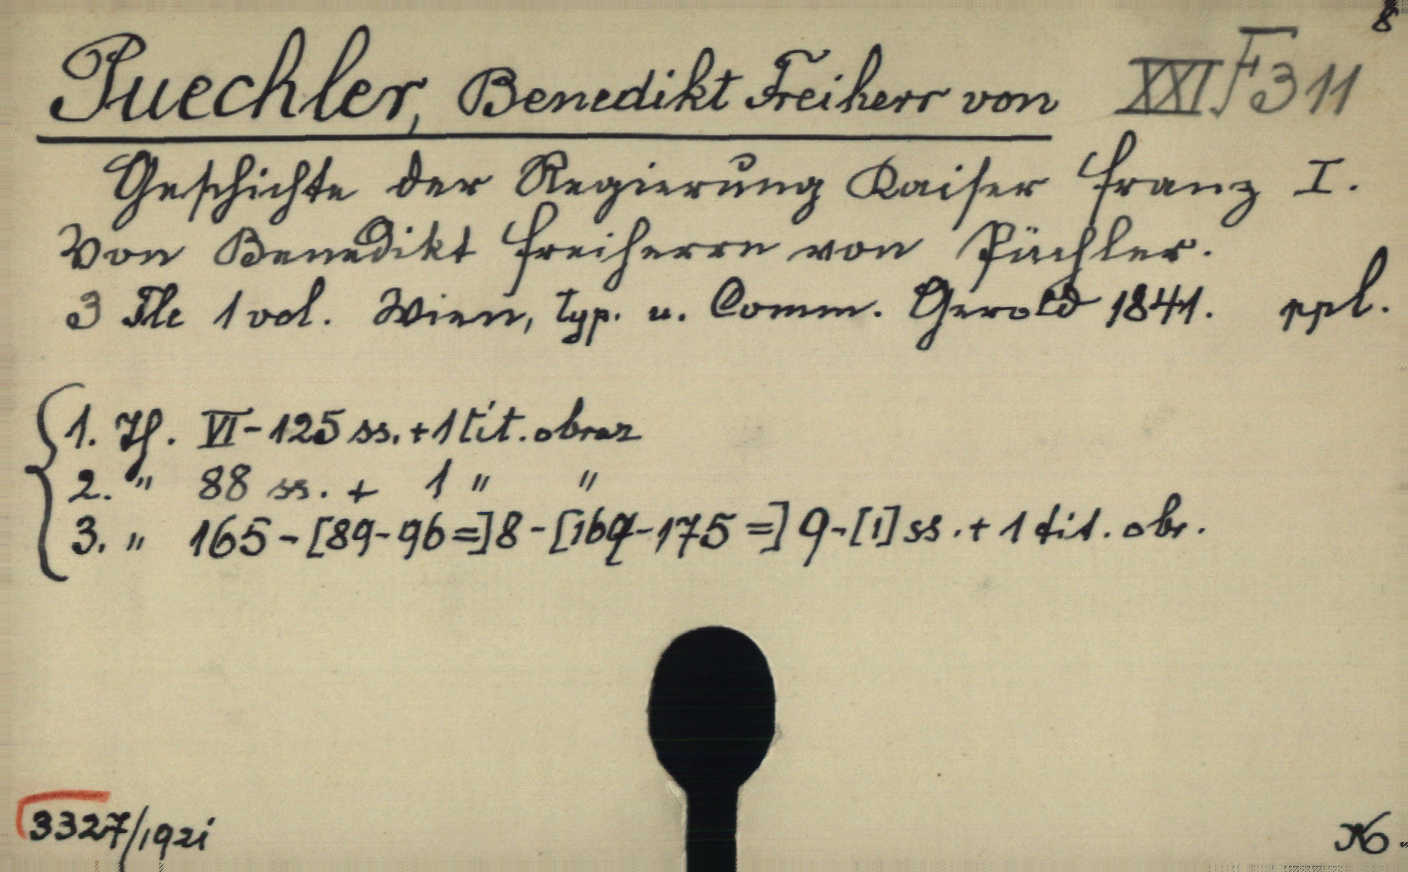 8
Puechler, Benedikt Freiherr von XXI F 311
Geschichte der Regierung Kaiser Franz I.
Von Benedikt Freiherrn von Püchler.
3 Tle 1 vol. Wien, typ. u. Comm. Gerold 1841. ppl.
1. Th. VI - 125 ss. + 1 tit. obraz
2. " 88 ss. + 1 " "
3. " 165 - [89-96=] 8 - [169-175=] 9 - [1] ss. + 1 tit. obr.
3327/1921